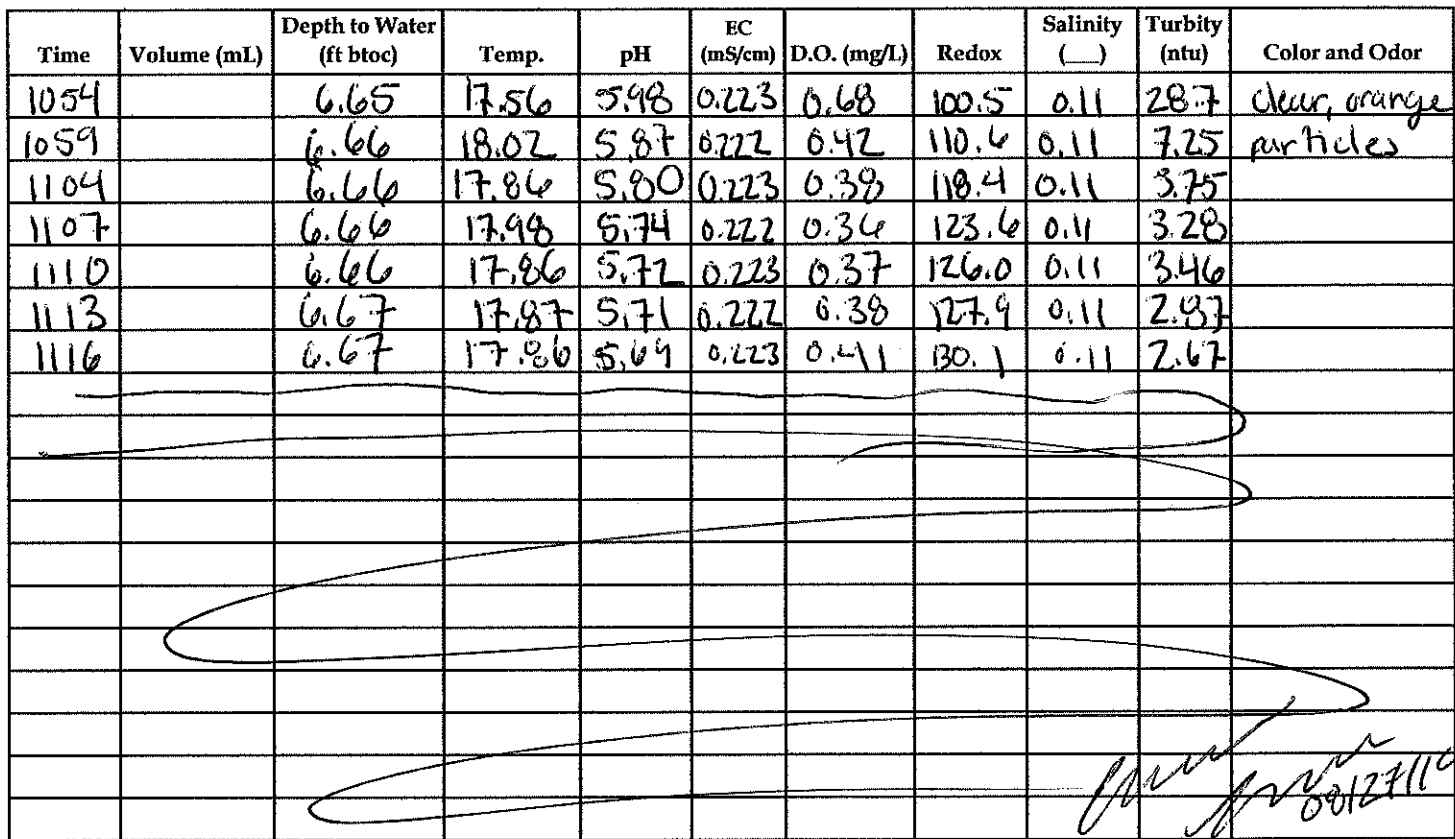 Time Volume (mL) Depth to Water (ft btoc) Temp. pH EC (mS/cm) D.O. (mg/L) Redox Salinity (__) Turbity (ntu) Color and Odor
1054 6.65 17.56 5.98 0.223 0.68 100.5 0.11 28.7 clear, orange
1059 6.66 18.02 5.87 0.222 0.42 110.6 0.11 7.25 particles
1104 6.66 17.86 5.80 0.223 0.38 118.4 0.11 3.75
1107 6.66 17.98 5.74 0.222 0.36 123.6 0.11 3.28
1110 6.66 17.86 5.72 0.223 0.37 126.0 0.11 3.46
1113 6.67 17.87 5.71 0.222 0.38 127.9 0.11 2.97
1116 6.67 17.86 5.69 0.223 0.41 130.1 0.11 2.67